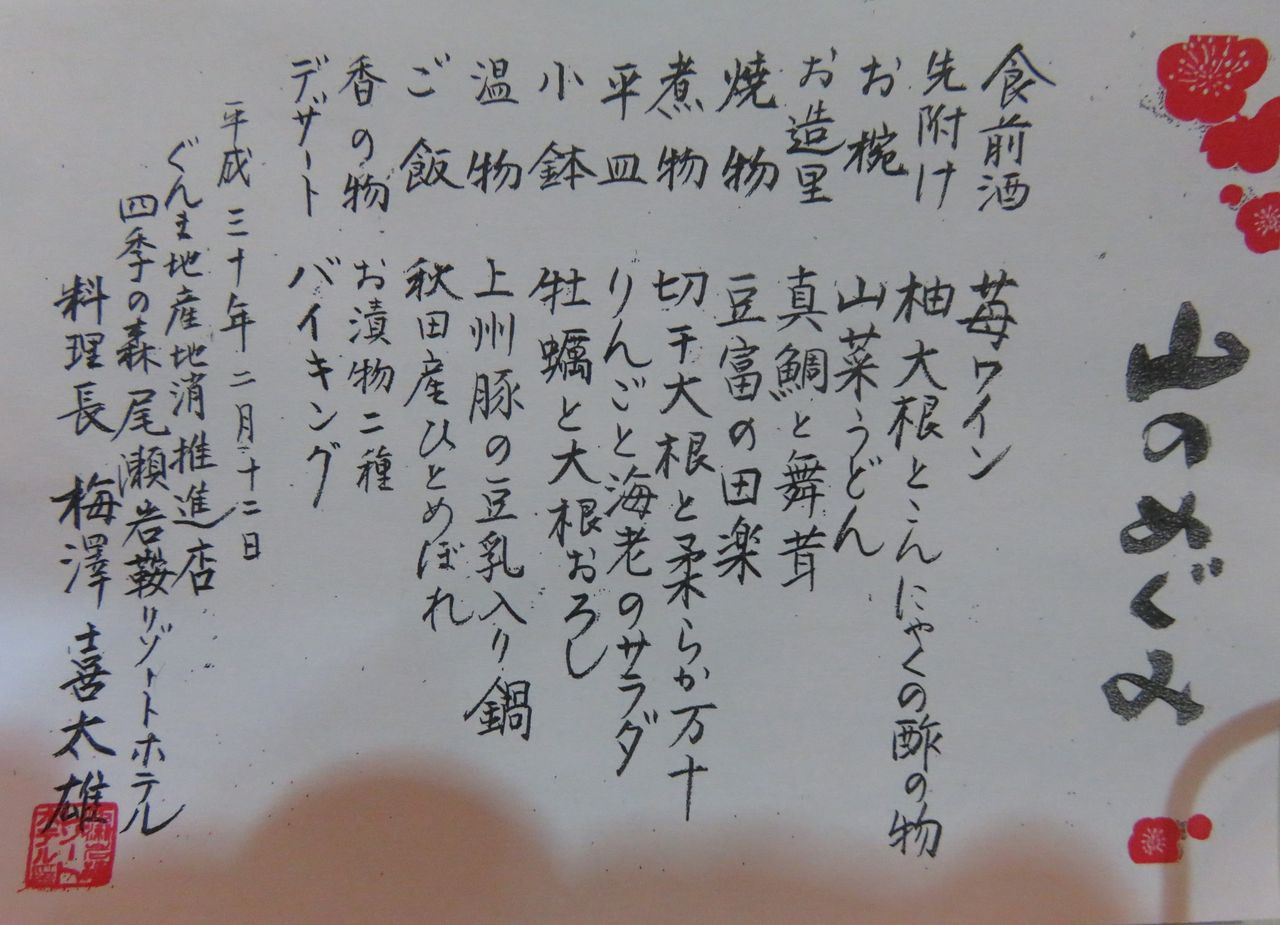 山のめぐみ
食前酒 苺ワイン
先附け 柚大根とこんにゃくの酢の物
お椀 山菜うどん
お造里 真鯛と舞茸
焼物 豆富の田楽
煮物 切干大根と柔らか万十
平皿 りんごと海老のサラダ
小鉢 牡蠣と大根おろし
温物 上州豚の豆乳入り鍋
ご飯 秋田産ひとめぼれ
香の物 お漬物二種
デザート バイキング
平成三十年二月十二日
ぐんま地産地消推進店
四季の森 尾瀬岩鞍リゾートホテル
料理長 梅澤喜太雄